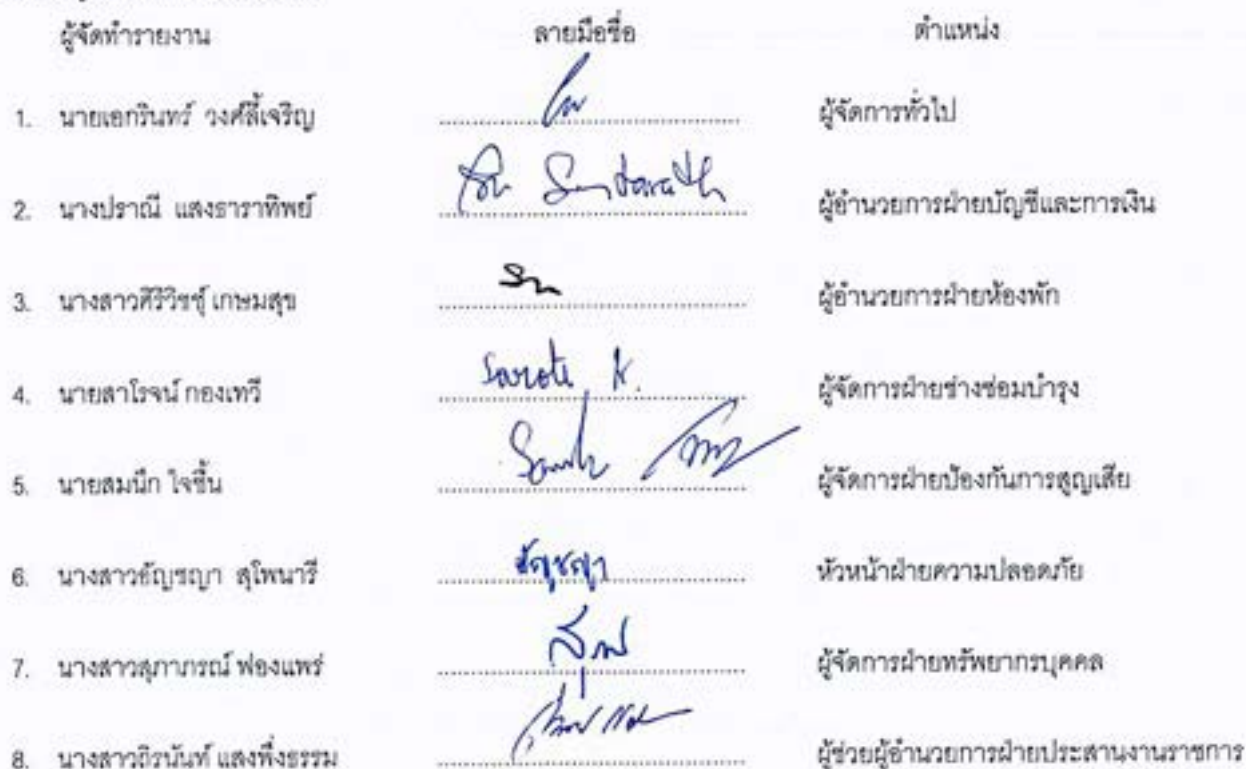 ผู้จัดทำรายงาน ลายมือชื่อ ตำแหน่ง
1. นายเอกรินทร์ วงศ์ลี้เจริญ ผู้จัดการทั่วไป
2. นางปราณี แสงธาราทิพย์ ผู้อำนวยการฝ่ายบัญชีและการเงิน
3. นางสาวศิริวิชช์ุ เกษมสุข ผู้อำนวยการฝ่ายห้องพัก
4. นายสาโรจน์ กองเทวี Sarote K. ผู้จัดการฝ่ายช่างซ่อมบำรุง
5. นายสมนึก ใจชื้น ผู้จัดการฝ่ายป้องกันการสูญเสีย
6. นางสาวธัญชญา สุโพนารี ธัญชญา หัวหน้าฝ่ายความปลอดภัย
7. นางสาวสุภาภรณ์ ฟองแพร่ ผู้จัดการฝ่ายทรัพยากรบุคคล
8. นางสาวถิรนันท์ แสงพึ่งธรรม ผู้ช่วยผู้อำนวยการฝ่ายประสานงานราชการ